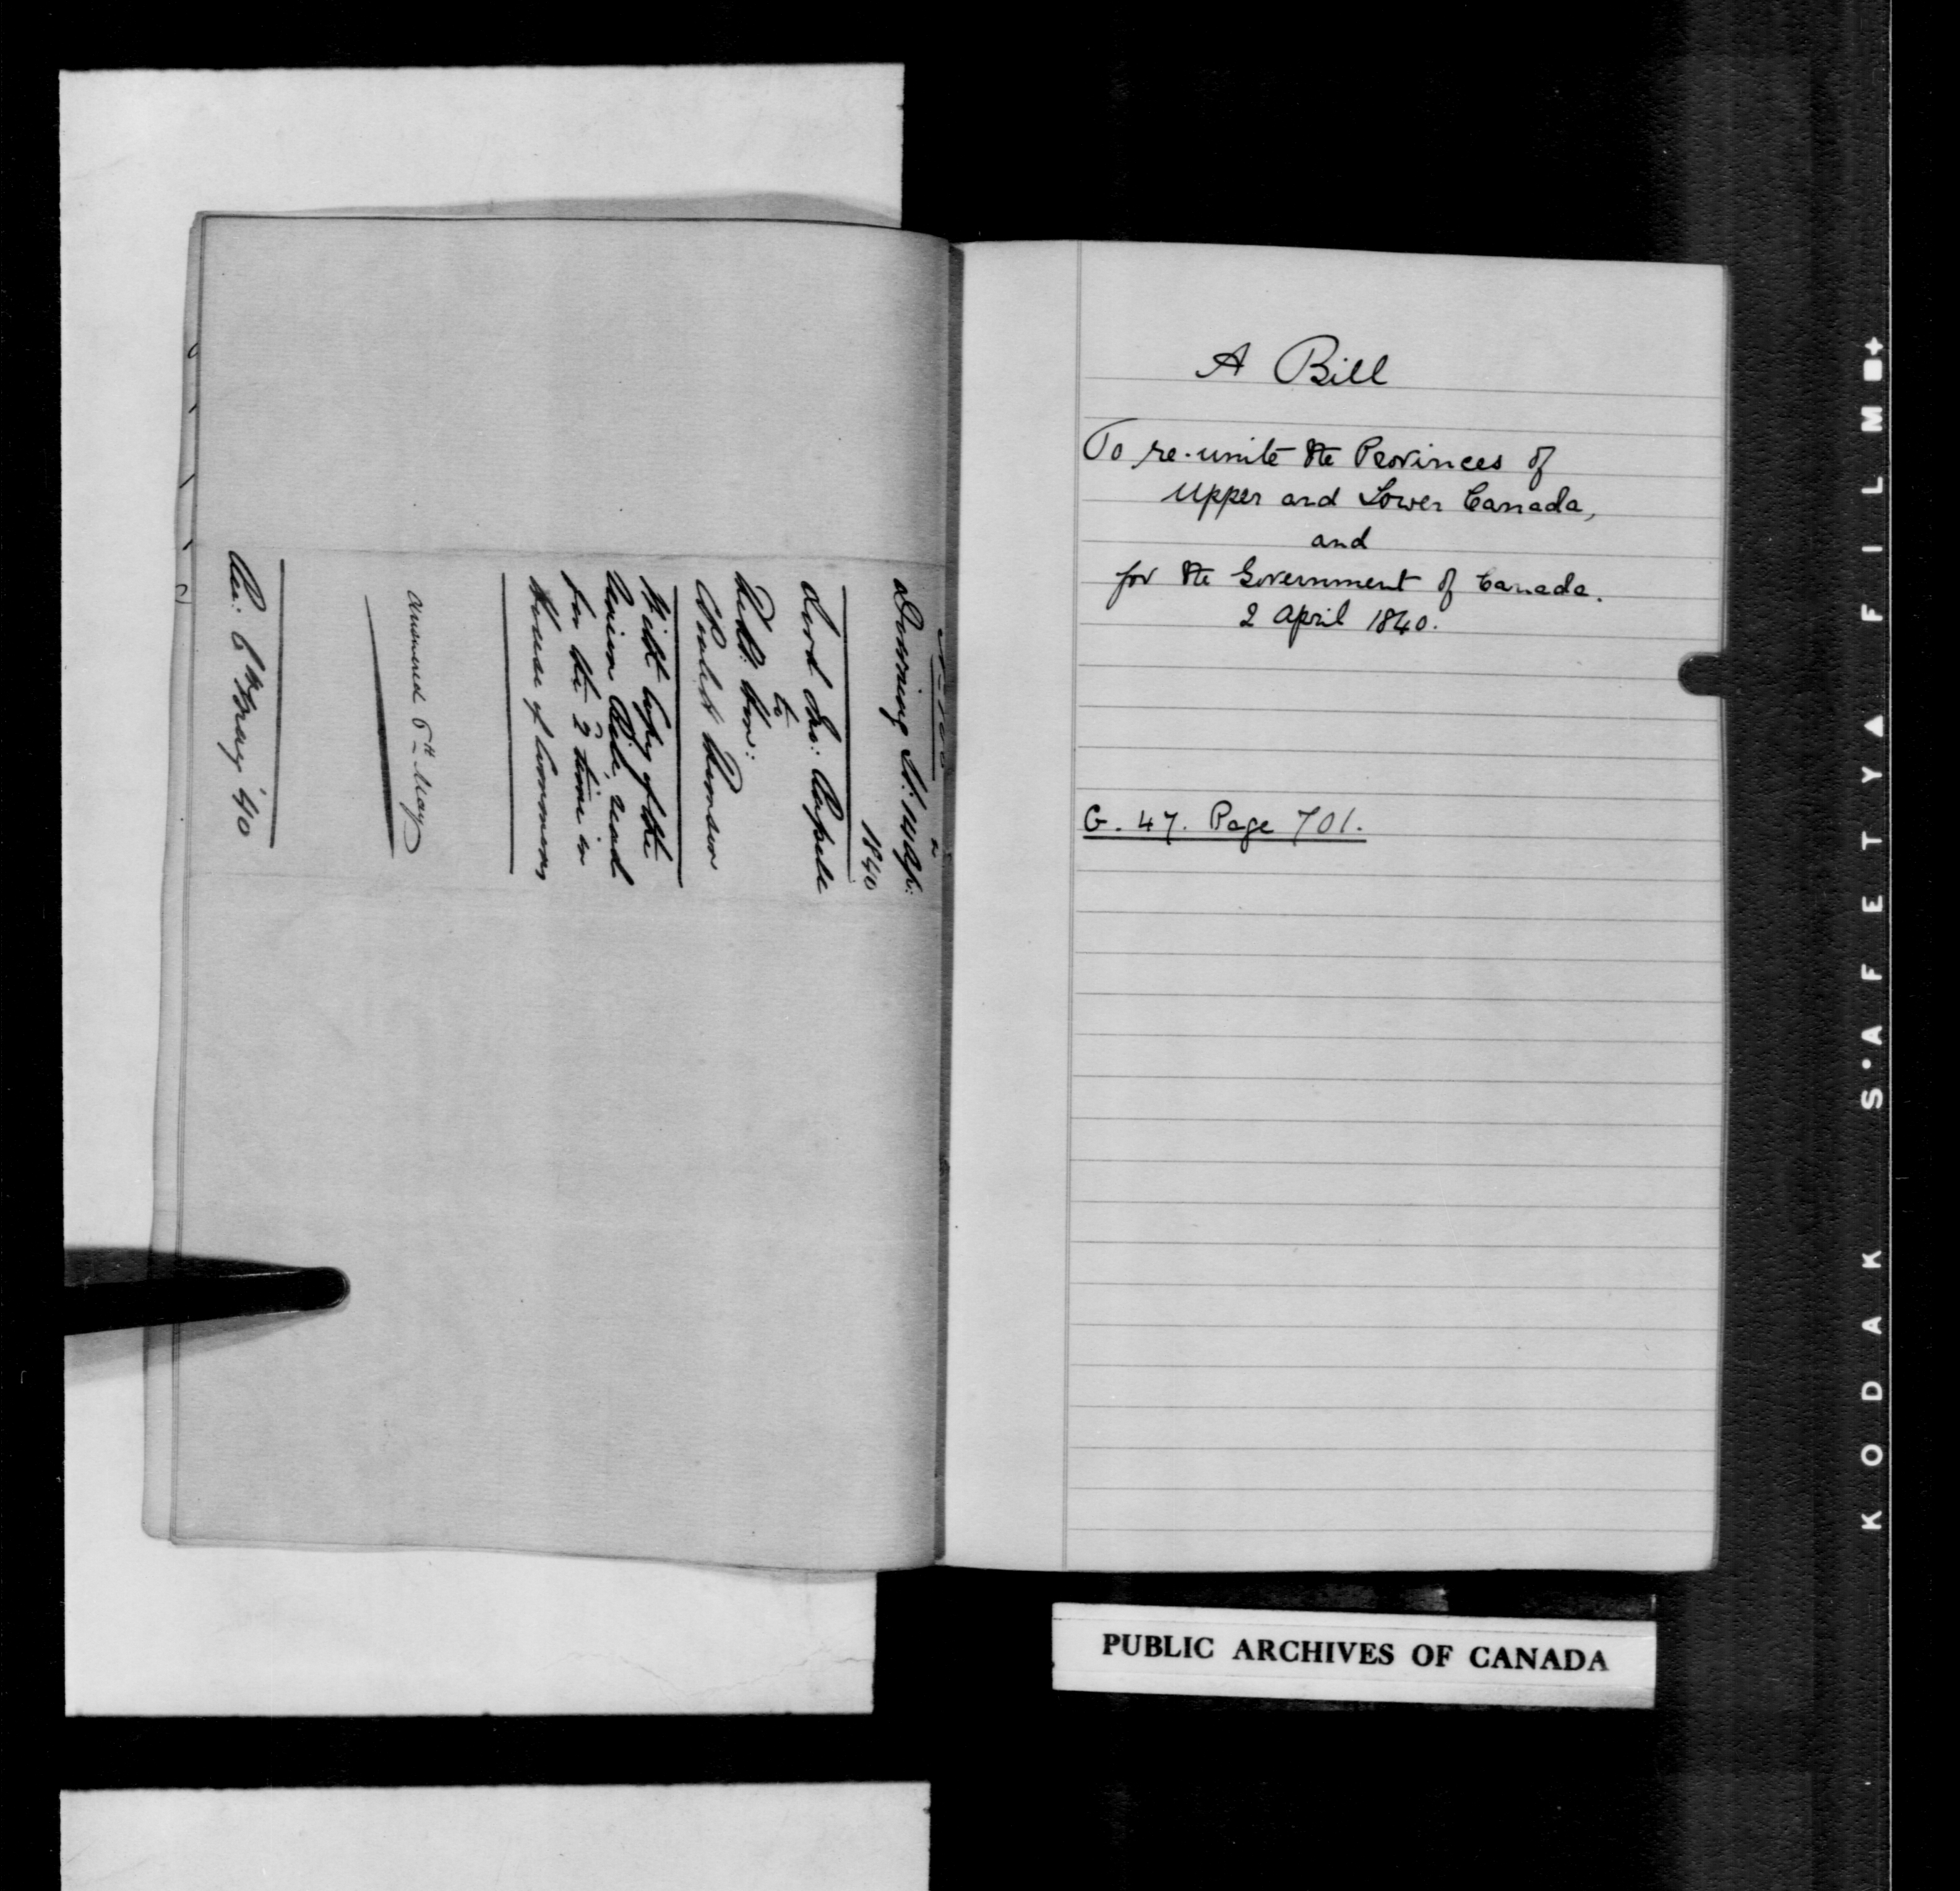 Downing St: 14 Ap:
1840
Lord Jno: Russell
to
Right Hon:
Poulett Thomson
With Copy of the
Union Bill, read
for the 2d time in
House of Commons
answered 6th May
Rec: 6th May '40
A Bill
To re-unite the Provinces of
Upper and Lower Canada,
and
for the Government of Canada.
2 April 1840.
G. 47. Page 701.
PUBLIC ARCHIVES OF CANADA
KODAK SAFETY FILM